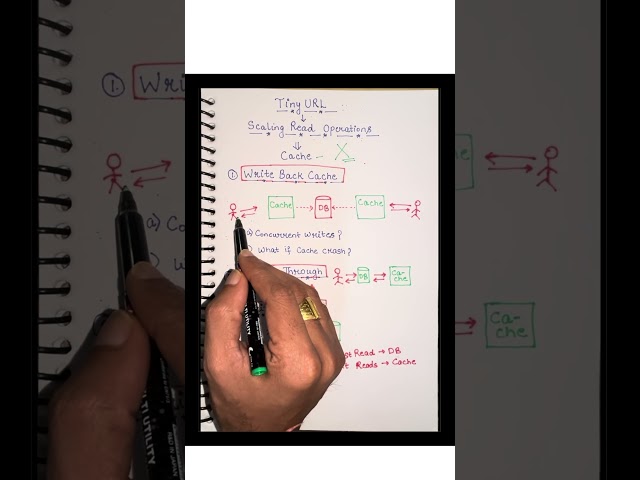 Tiny URL
Scaling Read Operations
Cache -
① Write Back Cache
Cache DB Cache
a) Concurrent Writes?
What if Cache crash?
Through DB Ca-che
Read → DB
Reads → Cache
① Writ
a) Co
W
Ca-che
UTILITY
MADE IN JAPAN